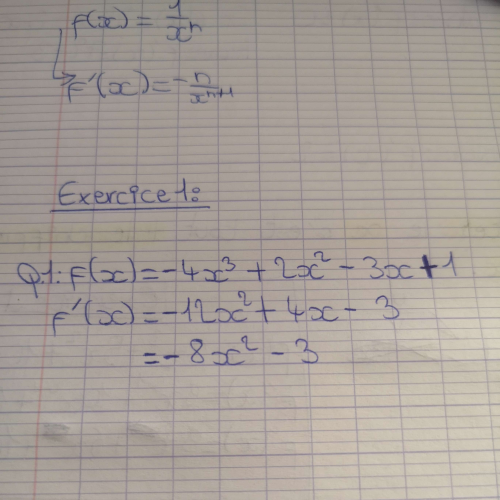 f(x) = 1/xⁿ
f'(x) = -n/xⁿ⁺¹
Exercice 1:
Q.1: f(x) = -4x³ + 2x² - 3x + 1
f'(x) = -12x² + 4x - 3
= -8x² - 3